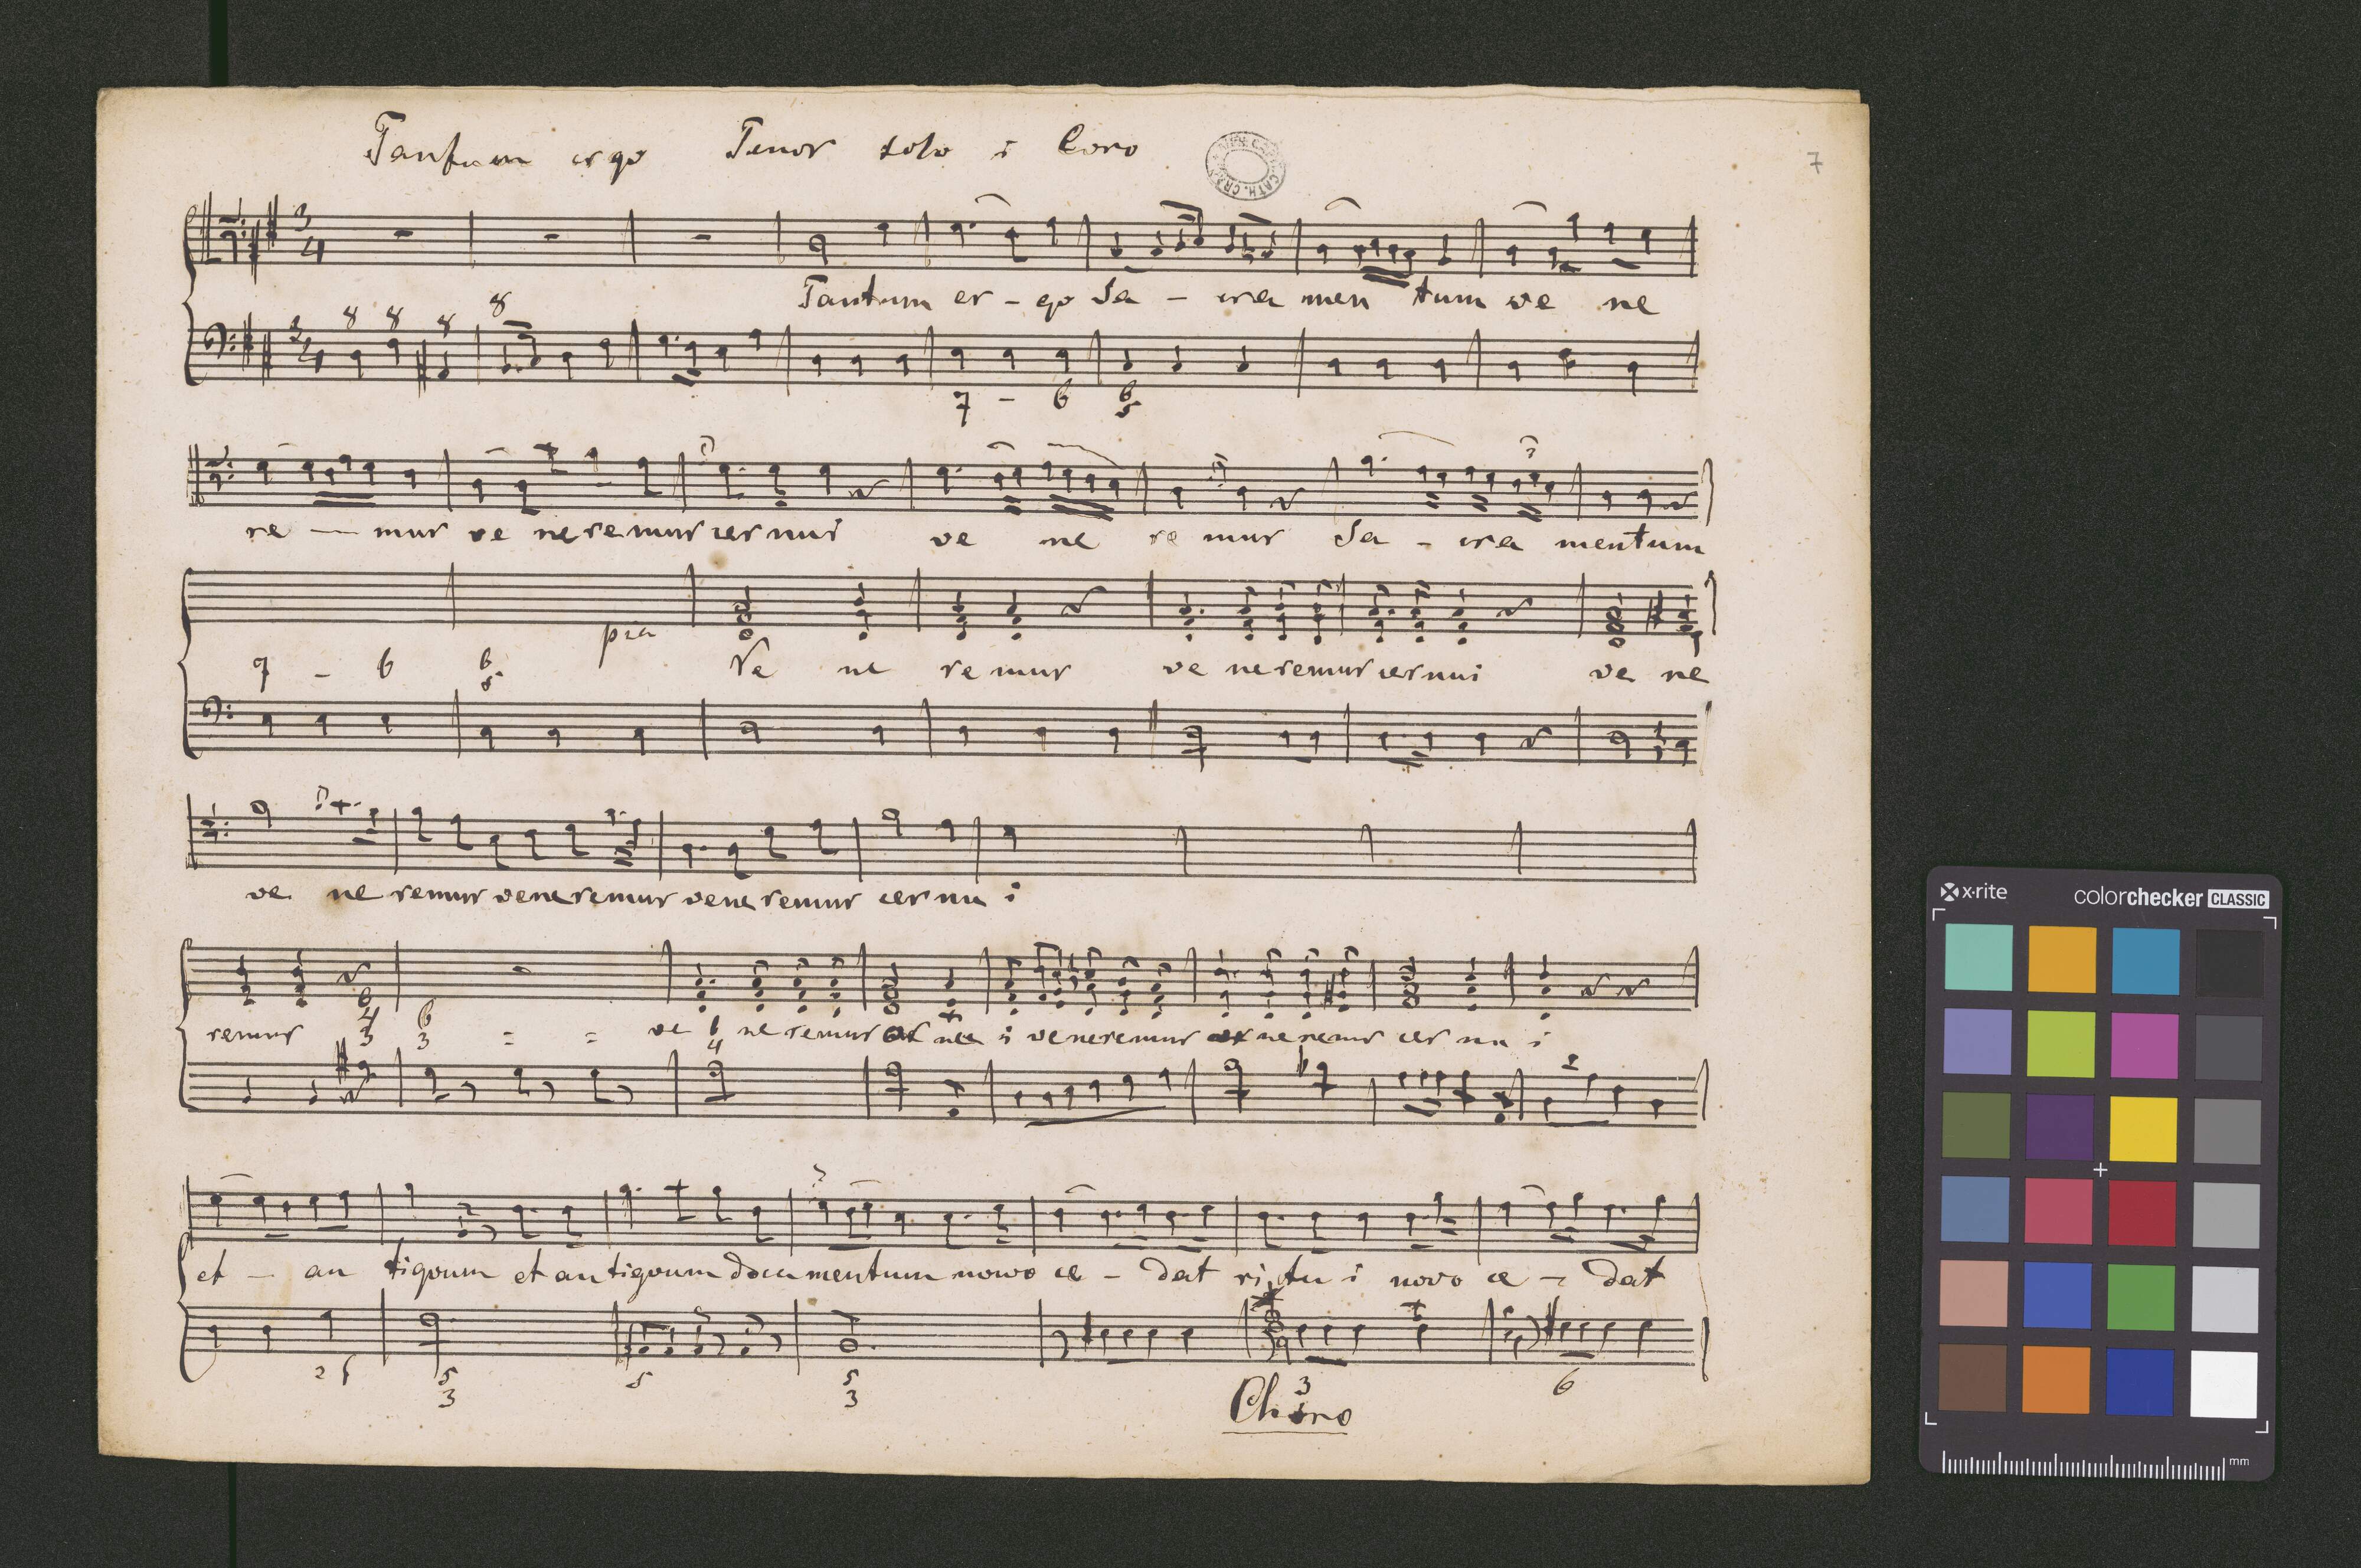 Tantum ergo Tenor solo i Coro
7
3 4
Tantum er - go Sa - cra men tum ve ne
8 8 8 8
3 4
7 - 6 6 5
re - mur ve ne remur cer nui ve ne re mur Sa - cra mentum
pia
7 - 6 6 5 Ve ne re mur ve ne remur cernui ve ne
ve ne remur vene remur vene remur cer nu i
remur 4 3 6 3 = = ve 6 4 ne remur nu i veneremur ne remur cer nu i
et - an tiqvum et an tiqvum docu mentum nowo ce - dat ri tu i novo ce - dat
5 3 5 5 3 3 6
Choro
x·rite colorchecker CLASSIC
mm